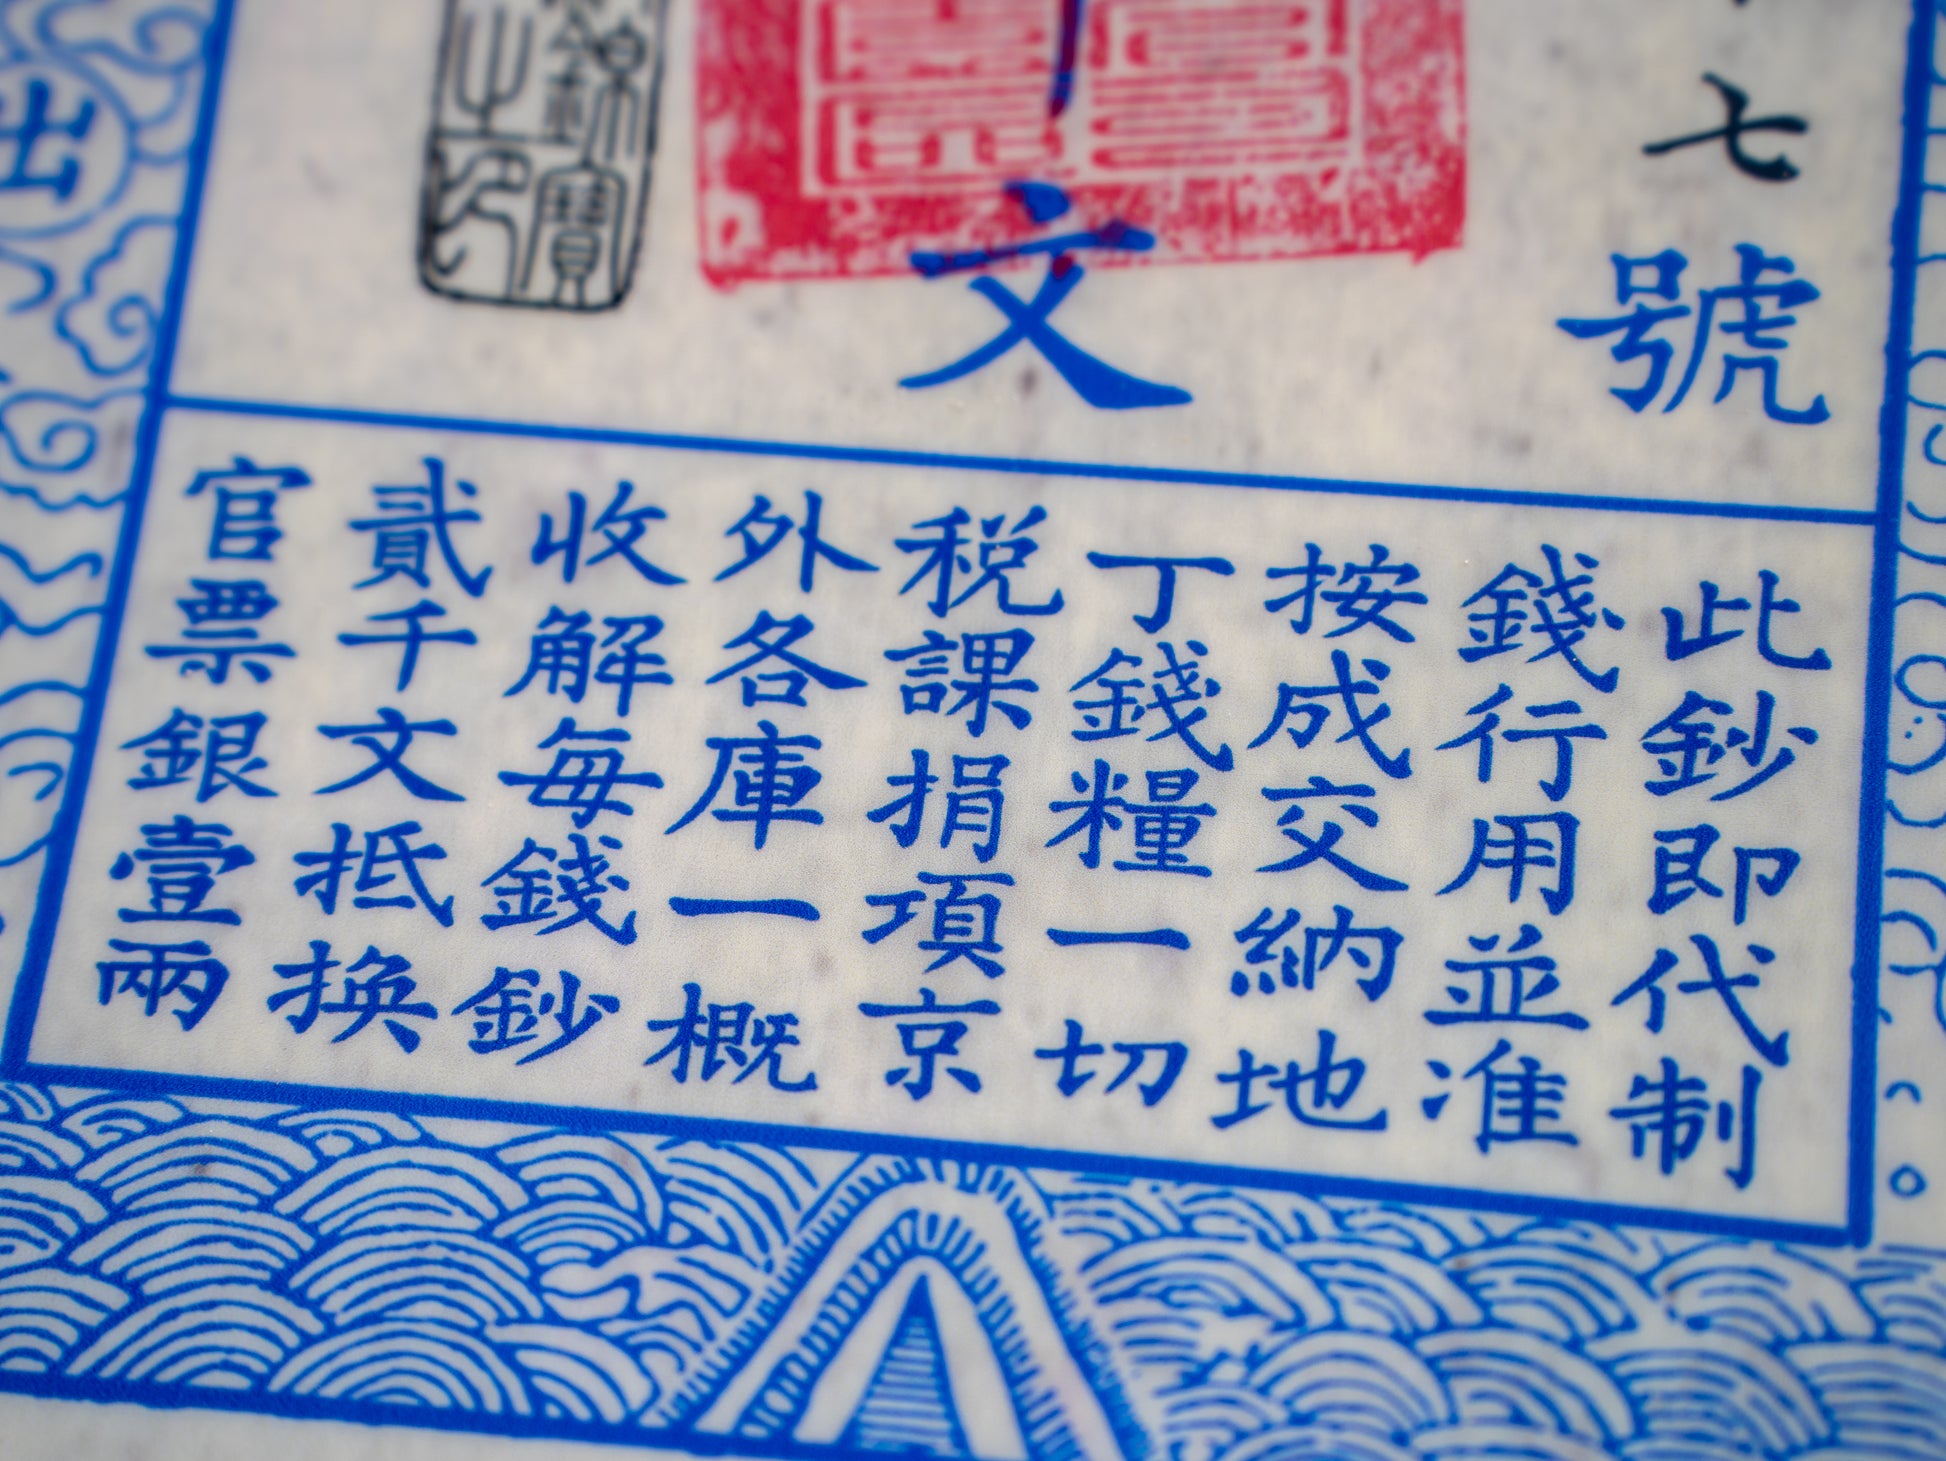 七號
文
此鈔即代制
錢行用並准
按成交納地
丁錢糧一切
税課捐項京
外各庫一概
收解每錢鈔
貳千文抵换
官票銀壹兩